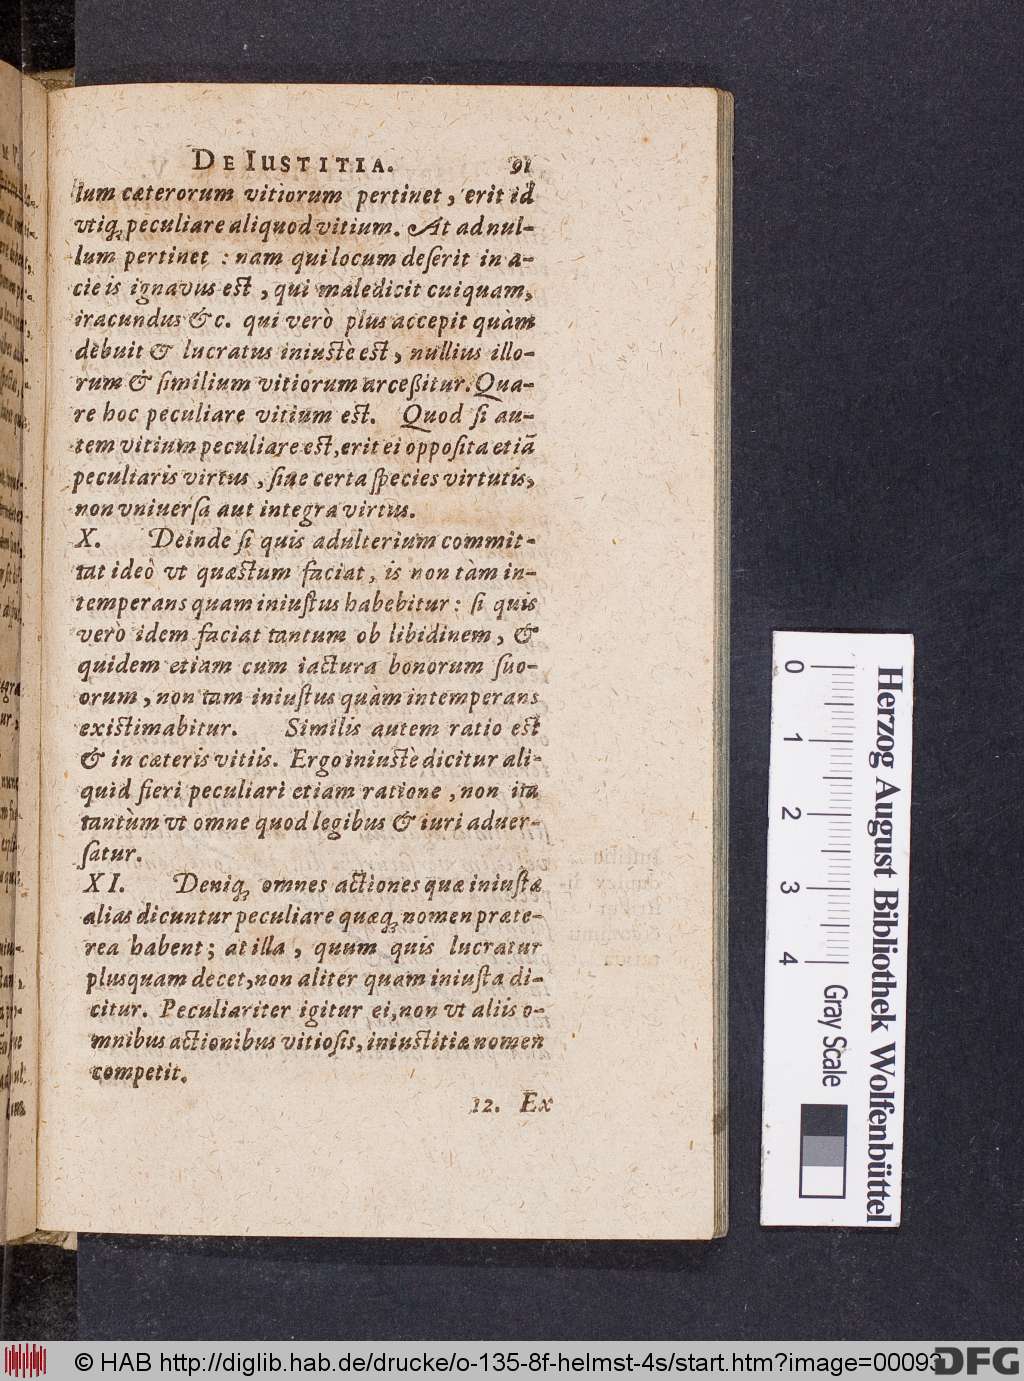 DE IUSTITIA. 91
lum cæterorum vitiorum pertinet, erit id
vtiq; peculiare aliquod vitium. At ad nul-
lum pertinet : nam qui locum deſerit in a-
cie is ignavus est, qui maledicit cuiquam,
iracundus &c. qui verò plus accepit quàm
debuit & lucratus iniustè est, nullius illo-
rum & ſimilium vitiorum arceßitur. Qua-
re hoc peculiare vitium est. Quod ſi au-
tem vitium peculiare est, erit ei oppoſita etiã
peculiaris virtus, ſiue certa ſpecies virtutis,
non vniuerſa aut integra virtus.
X. Deinde ſi quis adulterium commit-
tat ideò vt quæstum faciat, is non tàm in-
temperans quam iniuſtus habebitur: ſi quis
verò idem faciat tantum ob libidinem, &
quidem etiam cum iactura bonorum ſuo-
orum, non tam iniuſtus quàm intemperans
existimabitur. Similis autem ratio est
& in cæteris vitiis. Ergo iniustè dicitur ali-
quid fieri peculiari etiam ratione, non ita
tantùm vt omne quod legibus & iuri aduer-
ſatur.
XI. Deniq; omnes actiones quæ iniuſtæ
alias dicuntur peculiare quæq; nomen præte-
rea habent; at illa, quum quis lucratur
plusquam decet, non aliter quam iniuſta di-
citur. Peculiariter igitur ei, non vt aliis o-
mnibus actionibus vitioſis, iniustitiæ nomen
competit.
12. Ex
0 1 2 3 4 Gray Scale
Herzog August Bibliothek Wolfenbüttel
© HAB http://diglib.hab.de/drucke/o-135-8f-helmst-4s/start.htm?image=00093
DFG